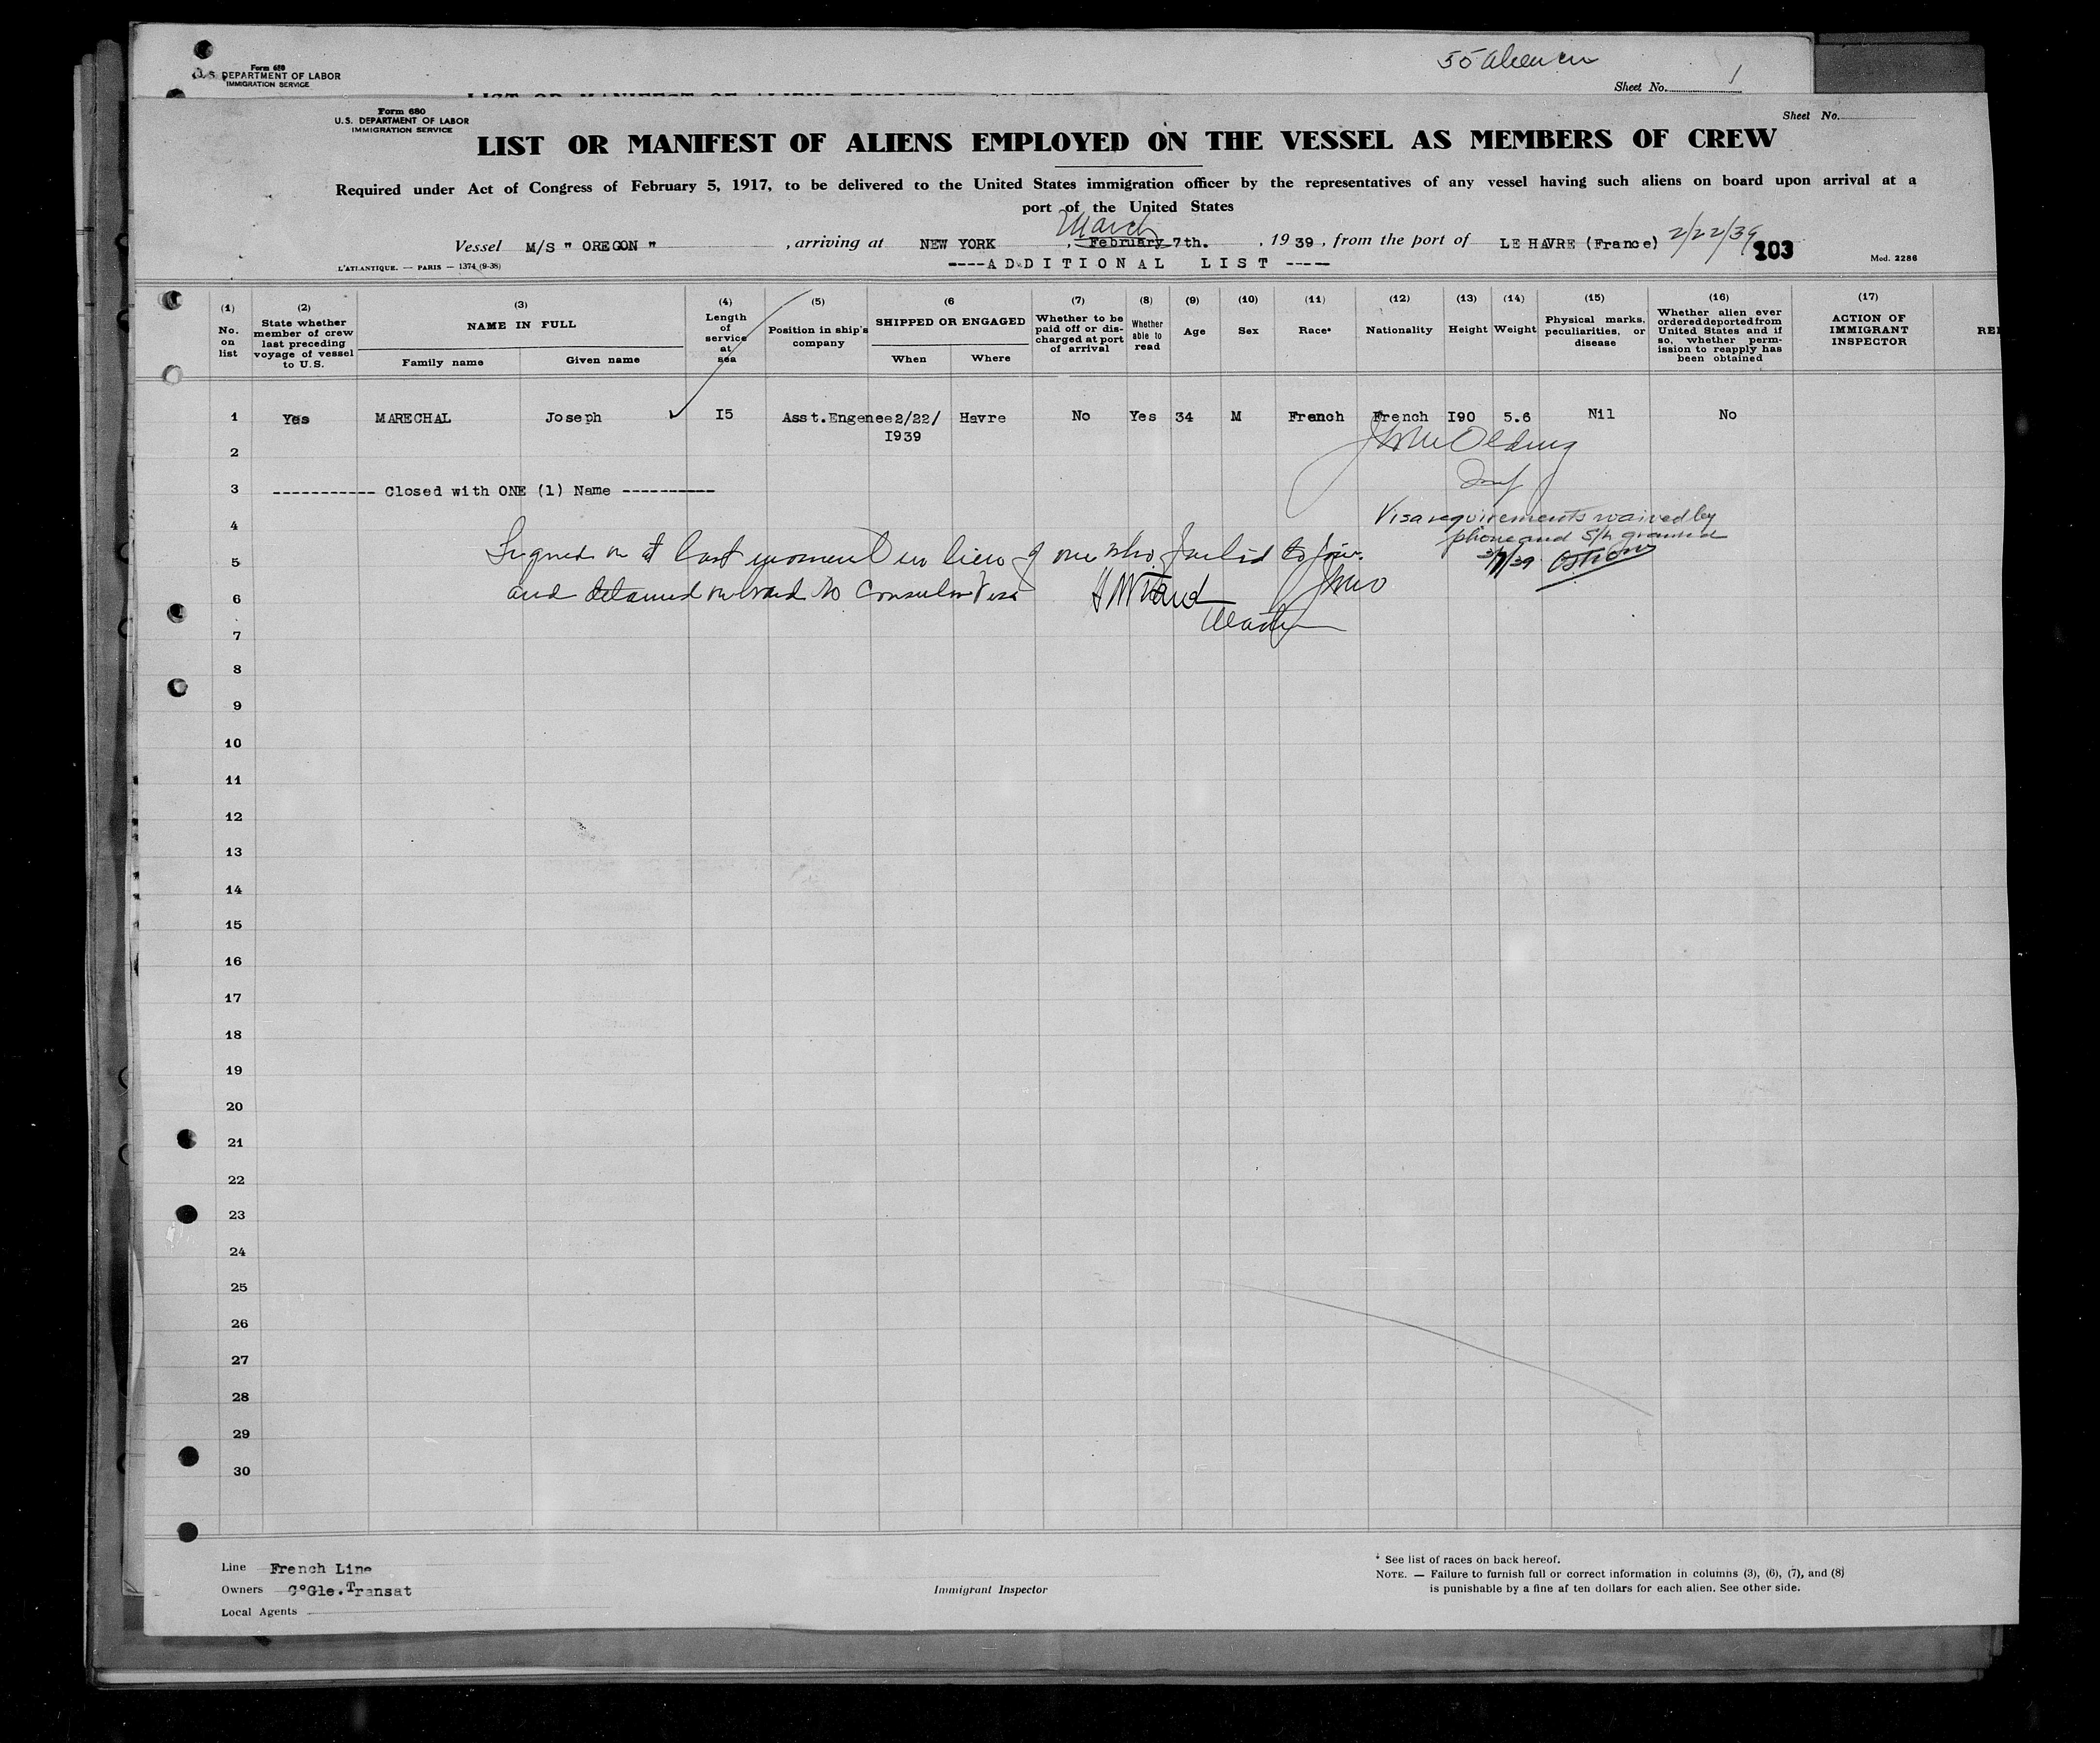 Form 680
U.S. DEPARTMENT OF LABOR
IMMIGRATION SERVICE
Sheet No. 1
Form 680
U.S. DEPARTMENT OF LABOR
IMMIGRATION SERVICE
Sheet No.
LIST OR MANIFEST OF ALIENS EMPLOYED ON THE VESSEL AS MEMBERS OF CREW
Required under Act of Congress of February 5, 1917, to be delivered to the United States immigration officer by the representatives of any vessel having such aliens on board upon arrival at a
port of the United States
March
Vessel M/S " OREGON " , arriving at NEW YORK , February 7th. , 19 39 , from the port of LE HAVRE (France) 2/22/39 103
L'ATLANTIQUE. — PARIS — 1374 (9-38) ----A D D I T I O N A L L I S T ----- Mod. 2286
(1) No. on list
(2) State whether member of crew last preceding voyage of vessel to U.S.
(3) NAME IN FULL
Family name Given name
(4) Length of service at sea
(5) Position in ship's company
(6 SHIPPED OR ENGAGED
When Where
(7) Whether to be paid off or discharged at port of arrival
(8) Whether able to read
(9) Age
(10) Sex
(11) Race*
(12) Nationality
(13) Height
(14) Weight
(15) Physical marks, peculiarities, or disease
(16) Whether alien ever ordered deported from United States and if so, whether permission to reapply has been obtained
(17) ACTION OF IMMIGRANT INSPECTOR
1 Yes MARECHAL Joseph I5 Asst.Engenee 2/22/ Havre No Yes 34 M French French I90 5.6 Nil No
I939
2
3 ----------- Closed with ONE (1) Name ----------
Visa requirements waived by
4
phone and S/L granted
3/7/39
5 Signed on at last moment in lieu of one who failed to join.
6 and detained on board No Consular Visa
Master
7
8
9
10
11
12
13
14
15
16
17
18
19
20
21
22
23
24
25
26
27
28
29
30
Line French Line
Owners C°Gle.Transat
Local Agents
Immigrant Inspector
* See list of races on back hereof.
NOTE. — Failure to furnish full or correct information in columns (3), (6), (7), and (8)
is punishable by a fine af ten dollars for each alien. See other side.